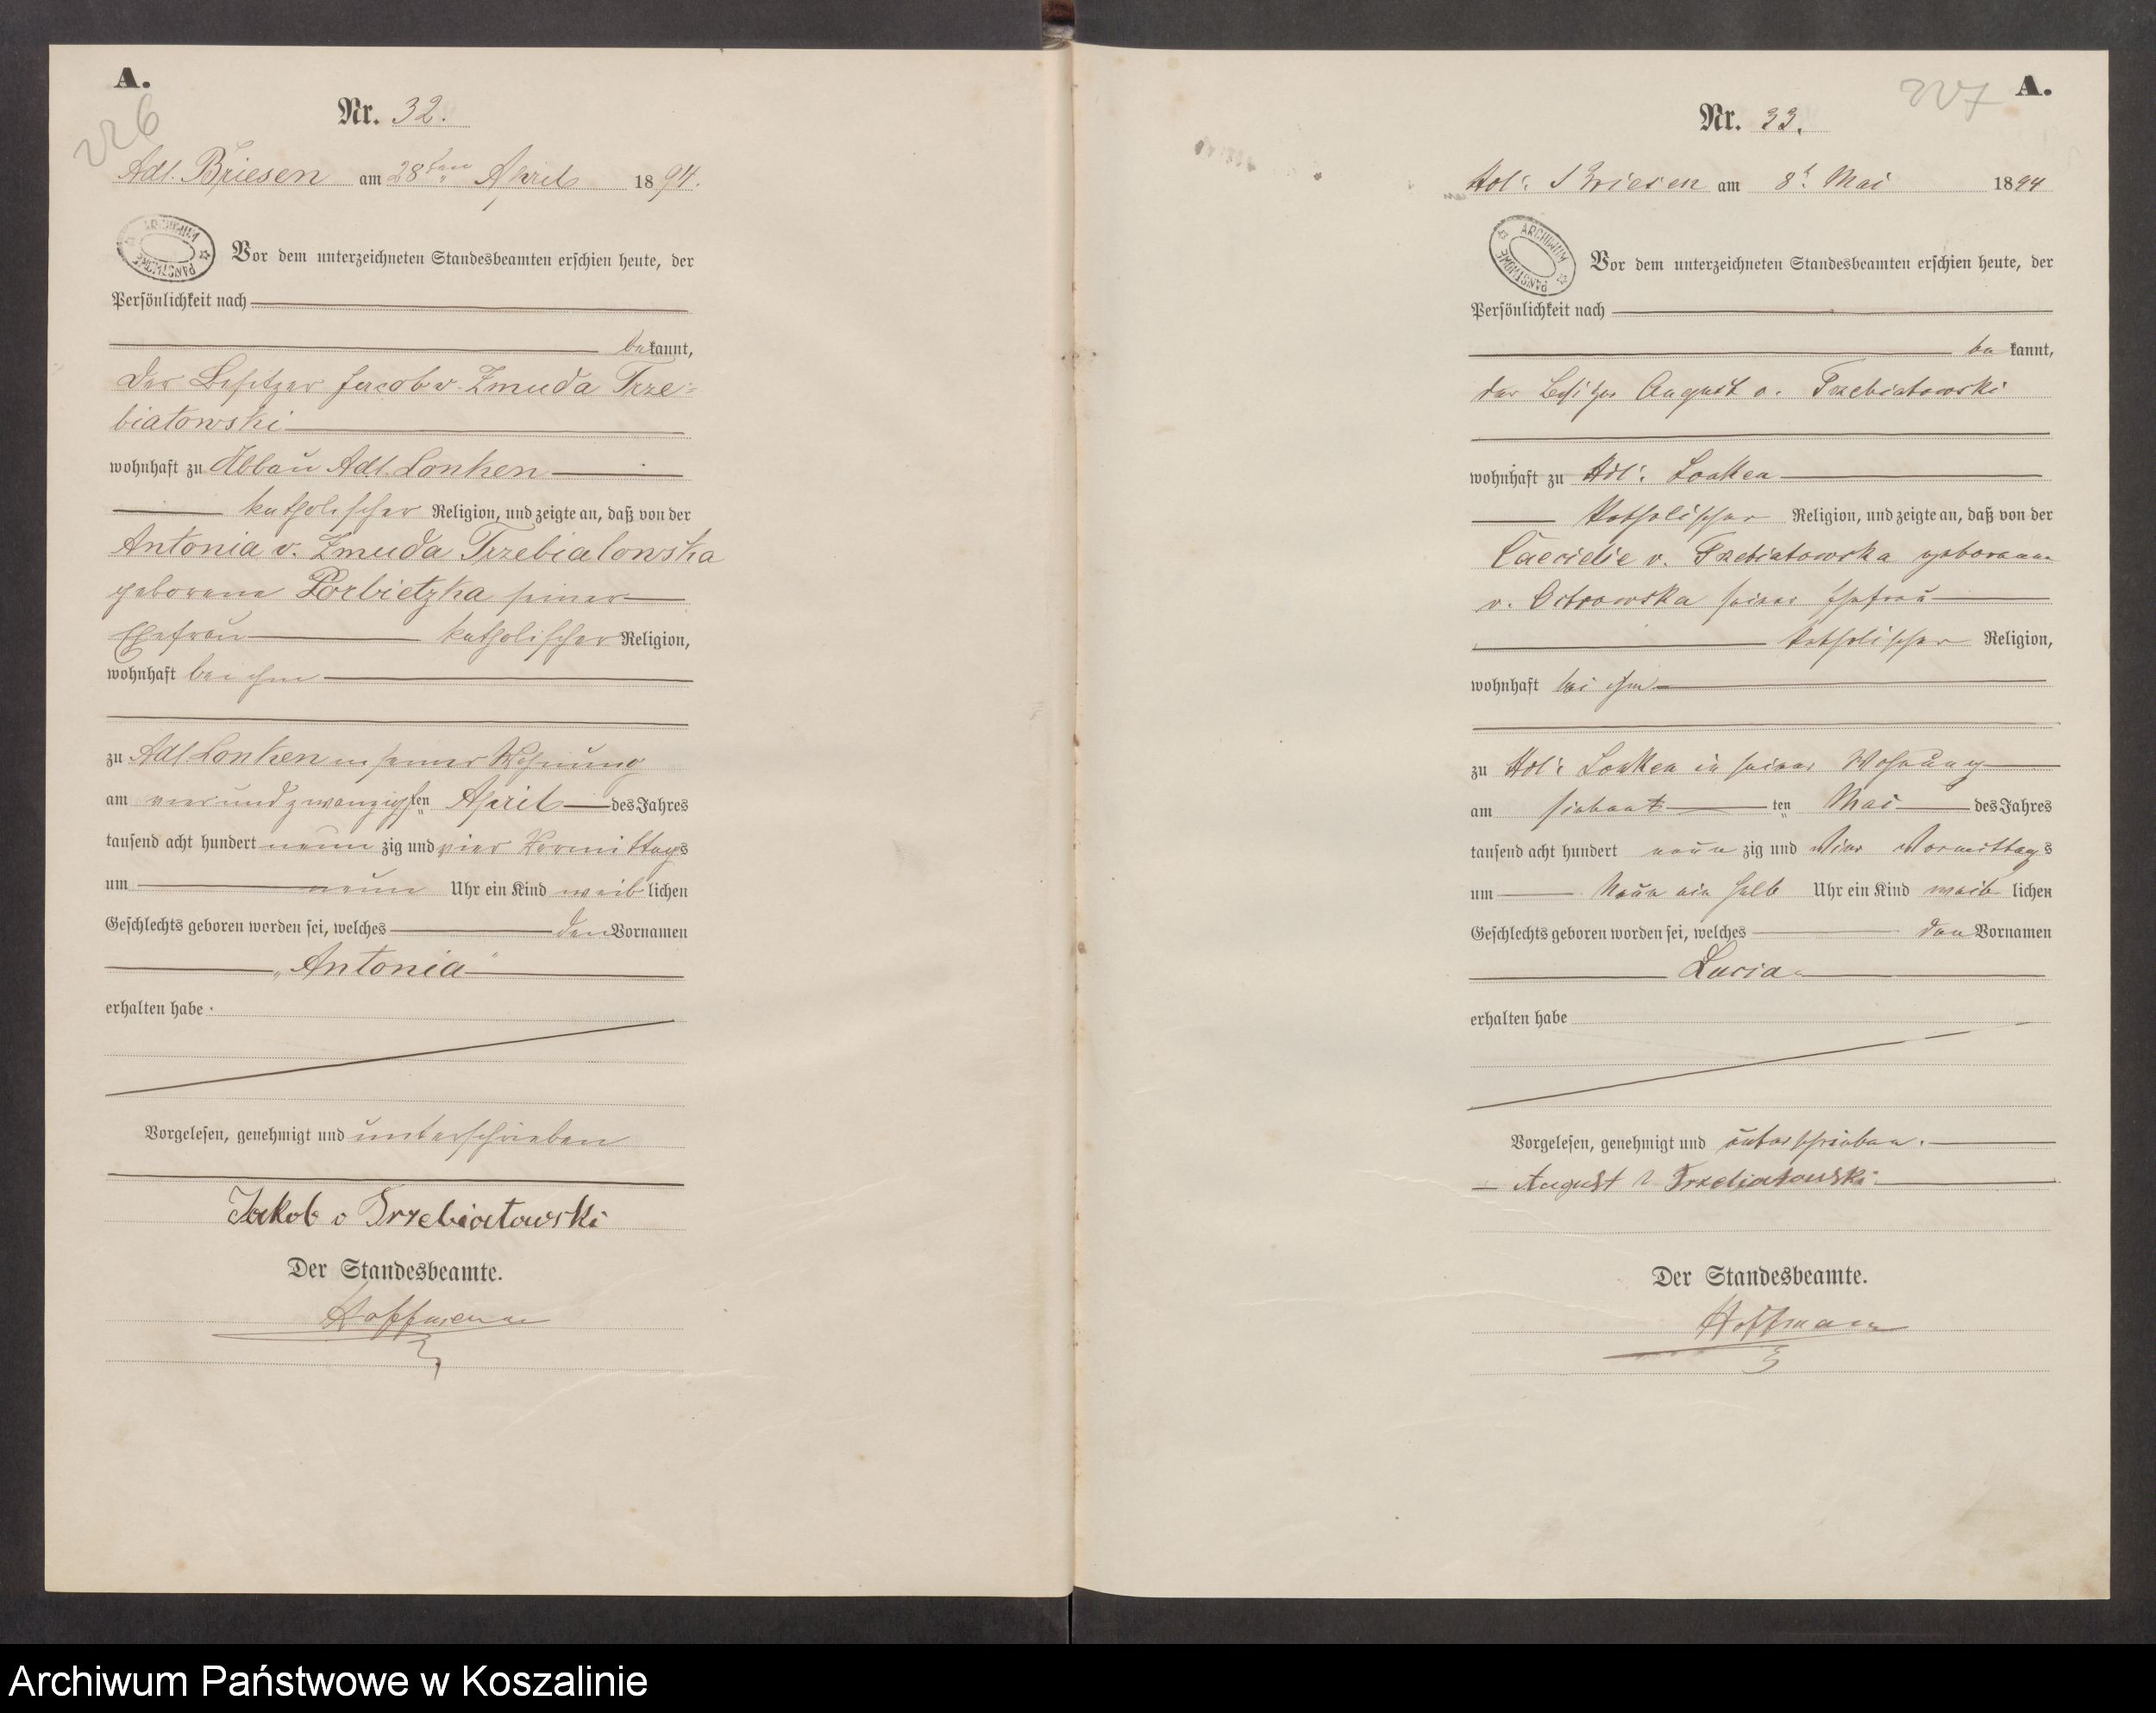 A.
226
Nr. 32.
Adl. Briesen am 28ten April 1894.
ARCHIWUM PAŃSTWOWE
Vor dem unterzeichneten Standesbeamten erschien heute, der
Persönlichkeit nach
bekannt,
der Besitzer Jacob v. Zmuda Trze-
biatowski
wohnhaft zu Abbau Adl. Lonken
katholischer Religion, und zeigte an, daß von der
Antonia v. Zmuda Trzebiatowska
geborene seiner
Ehefrau katholischer Religion,
wohnhaft bei ihm
zu Adl Lonken in seiner Wohnung
am vierundzwanzigsten April des Jahres
tausend acht hundert neunzig und vier Vormittags
um neun Uhr ein Kind weiblichen
Geschlechts geboren worden sei, welches den Vornamen
„Antonia"
erhalten habe.
Vorgelesen, genehmigt und unterschrieben
Jakob v Trzebiatowski
Der Standesbeamte.
Hoffmann
227
A.
Nr. 33.
Adl: Briesen am 8t Mai 1894
ARCHIWUM PAŃSTWOWE
Vor dem unterzeichneten Standesbeamten erschien heute, der
Persönlichkeit nach
bekannt,
der Besitzer August v. Trzebiatowski
wohnhaft zu Adl: Lonken
katholischer Religion, und zeigte an, daß von der
Caecielie v. Trzebiatowska geborene
v. Ostrowska seiner Ehefrau
katholischer Religion,
wohnhaft bei ihm
zu Adl: Lonken in seiner Wohnung
am siebenten Mai des Jahres
tausend acht hundert neunzig und vier Vormittags
um neun ein halb Uhr ein Kind weiblichen
Geschlechts geboren worden sei, welches den Vornamen
Lucia
erhalten habe
Vorgelesen, genehmigt und unterschrieben.
August v Trzebiatowski
Der Standesbeamte.
Hoffmann
Archiwum Państwowe w Koszalinie